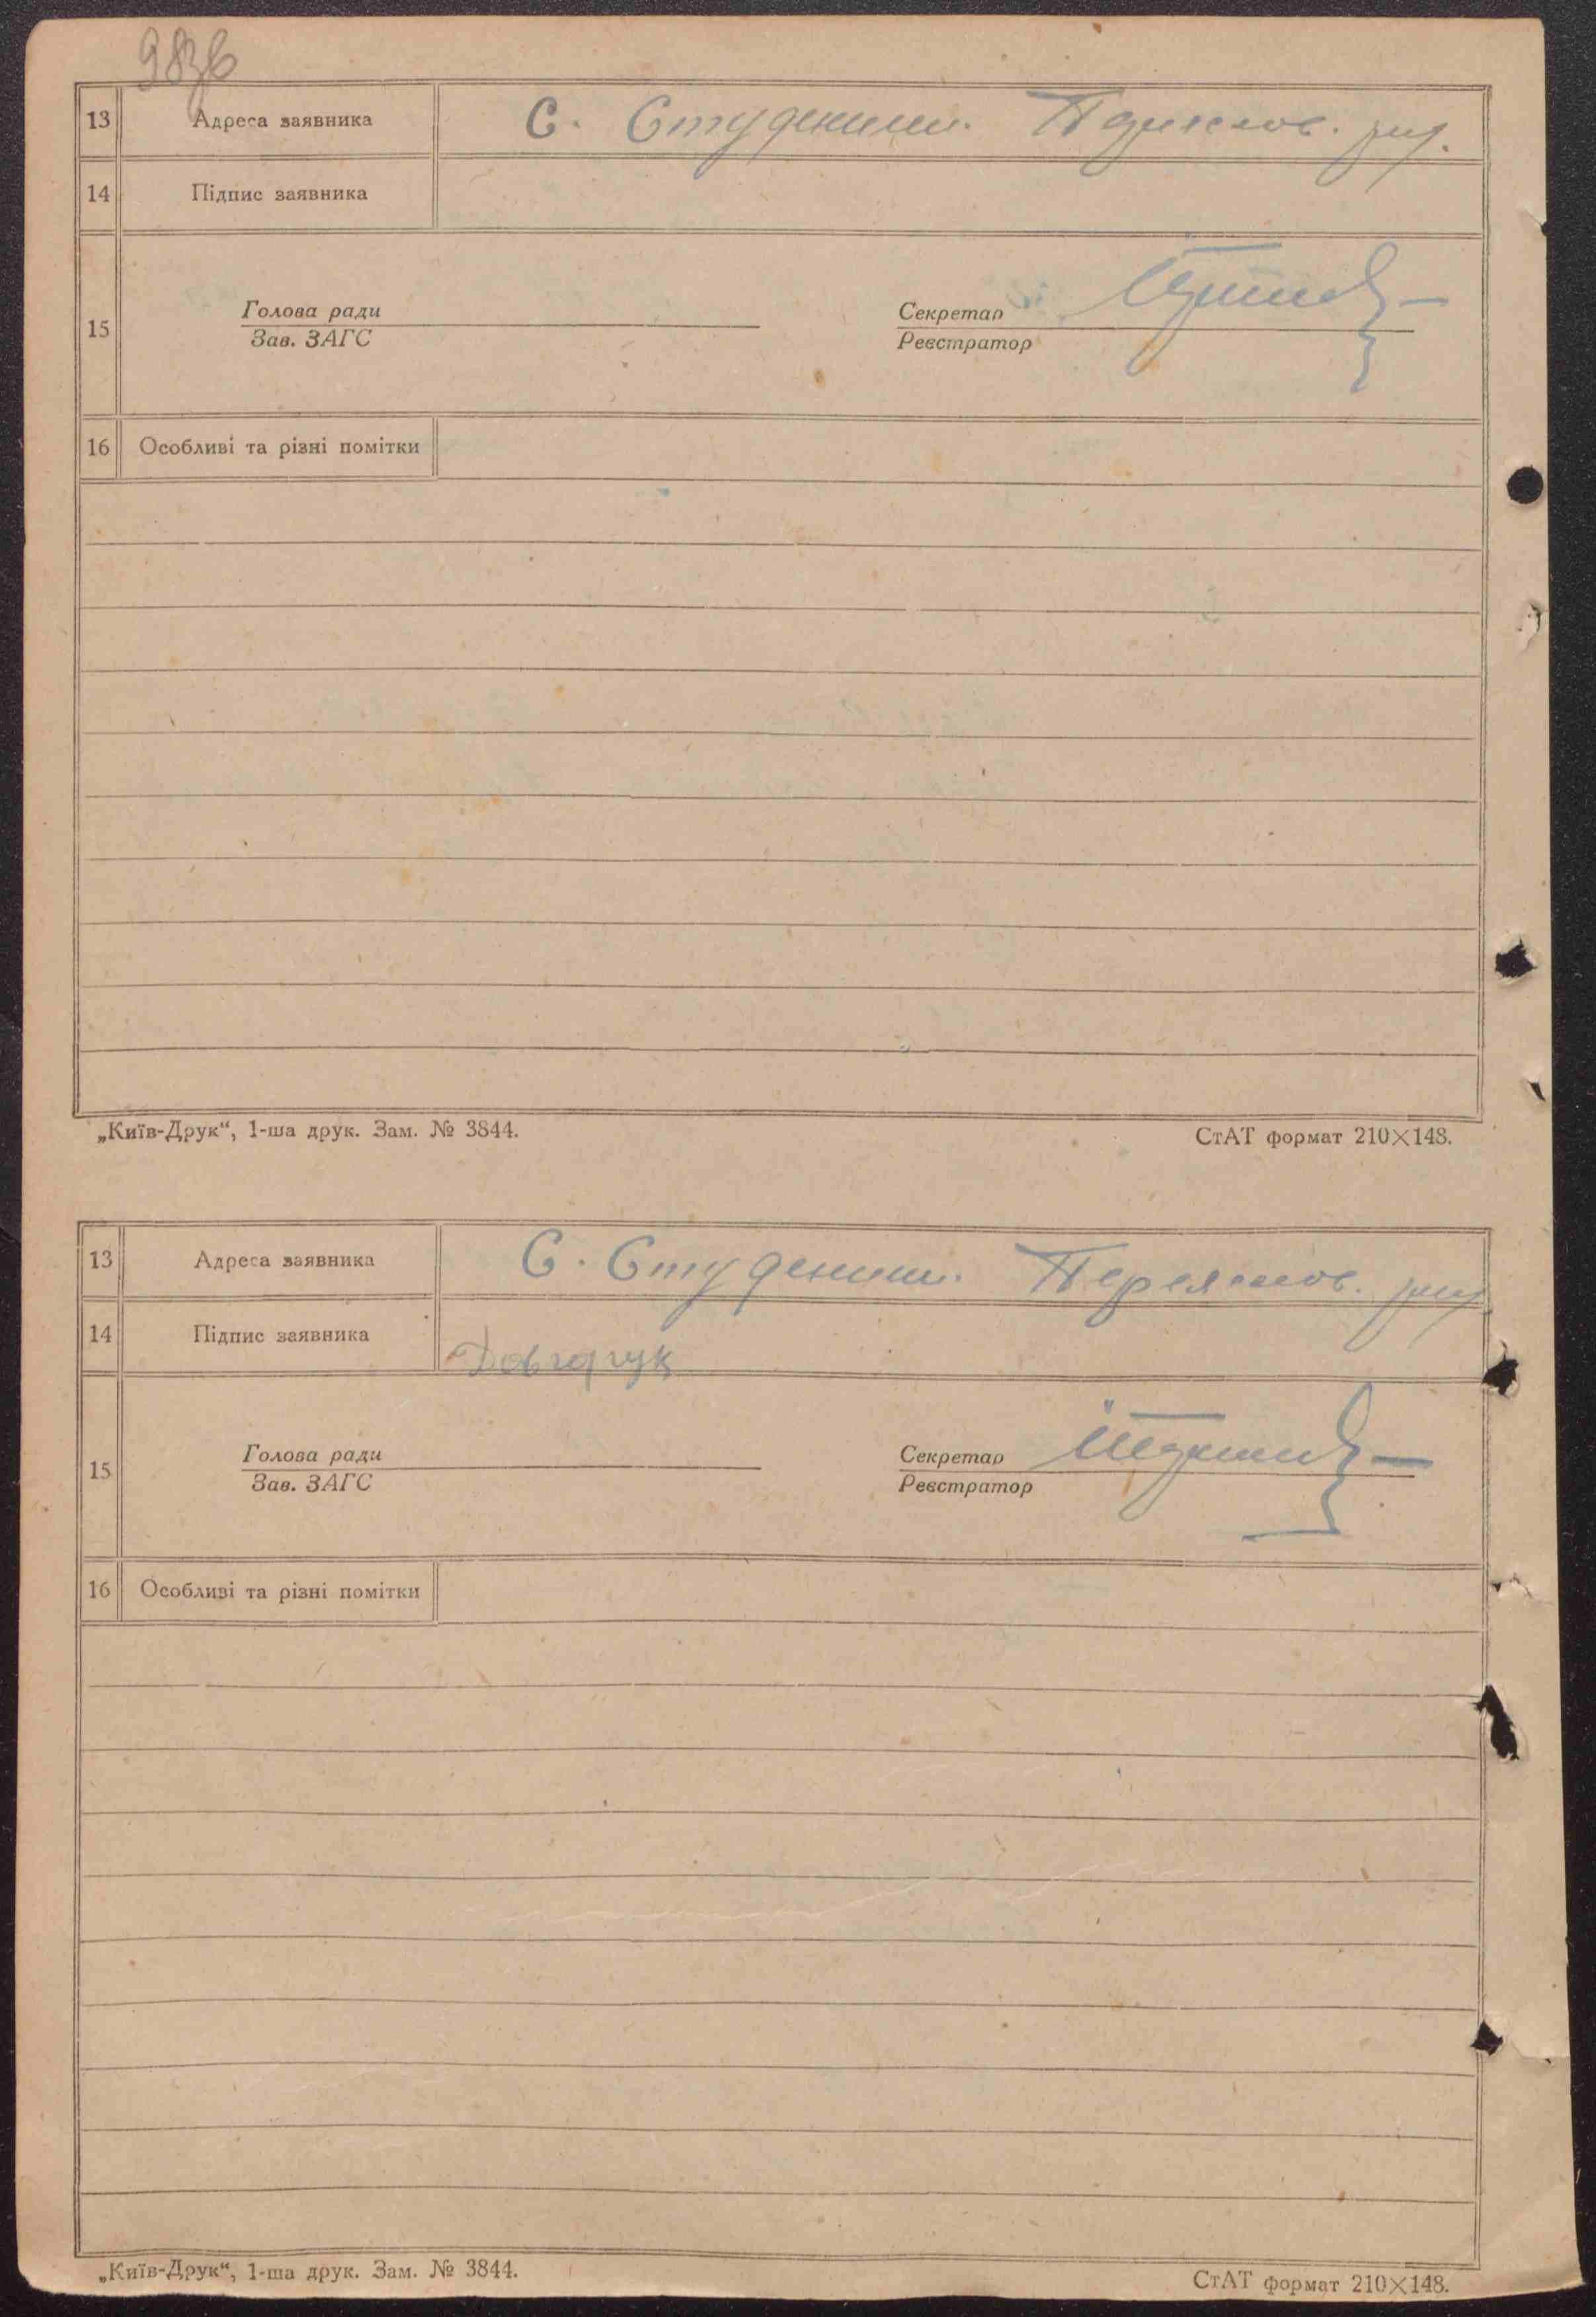 13 Адреса заявника С. Студеники.
14 Підпис заявника
15 Голова ради Секретар
Зав. ЗАГС Реєстратор
16 Особливі та різні помітки
„Київ-Друк“, 1-ша друк. Зам. № 3844. СтАТ формат 210×148.
13 Адреса заявника С. Студеники. Переяслов. рну
14 Підпис заявника Довгорук
15 Голова ради Секретар
Зав. ЗАГС Реєстратор
16 Особливі та різні помітки
„Київ-Друк“, 1-ша друк. Зам. № 3844. СтАТ формат 210×148.